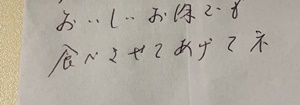 おいしいお漬でも
食べさせてあげてネ